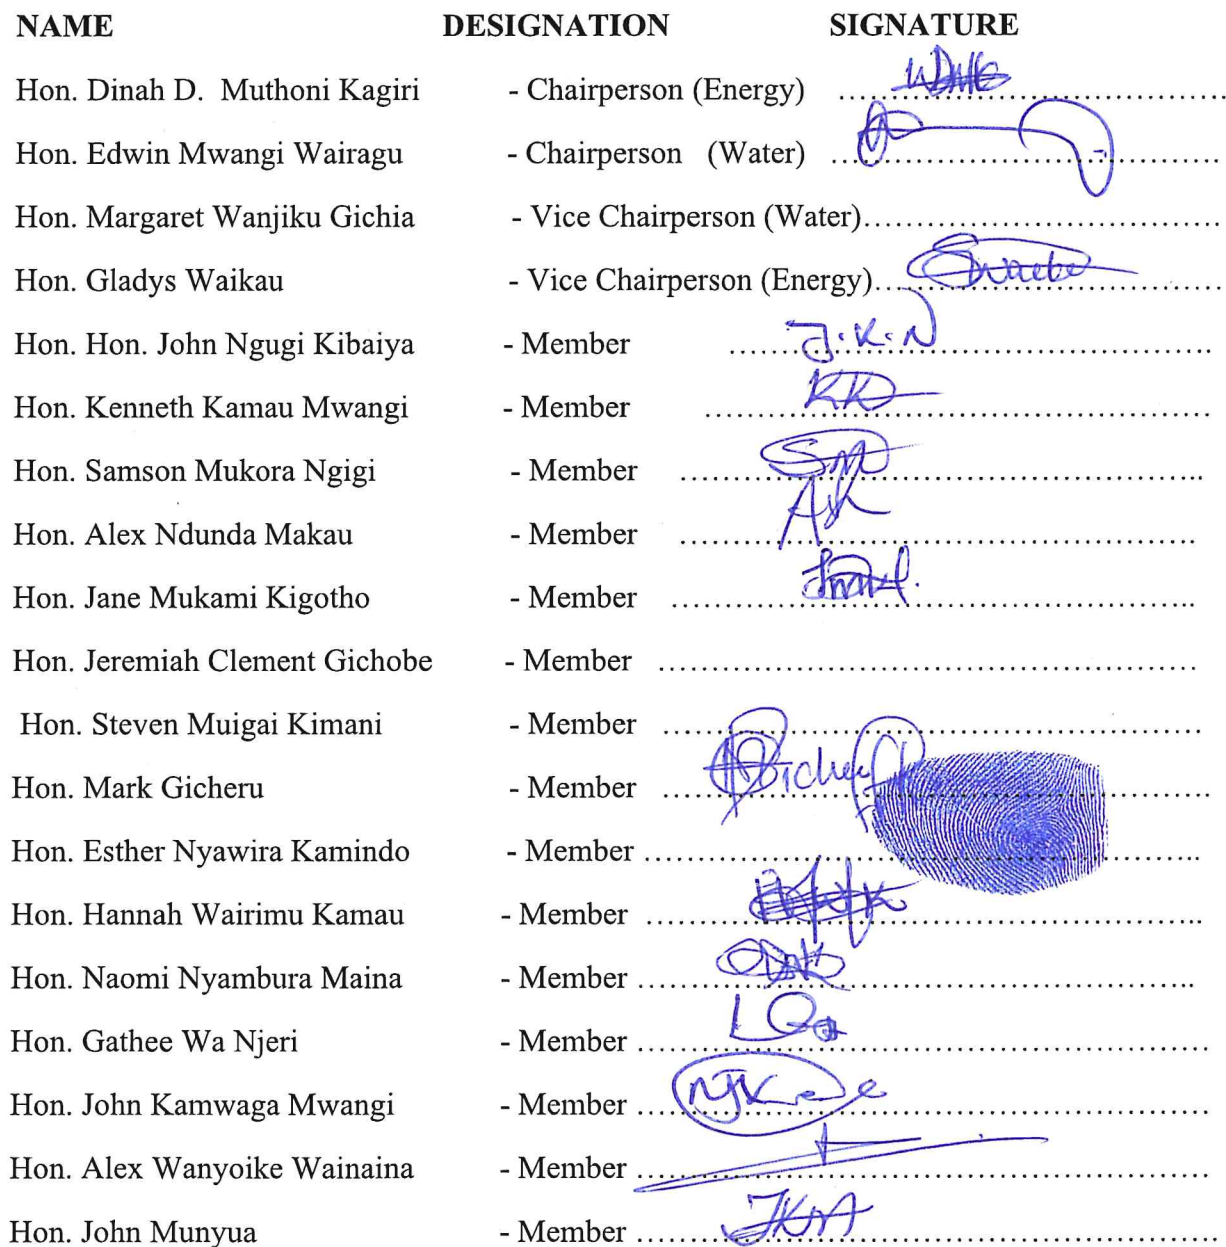 NAME DESIGNATION SIGNATURE
Hon. Dinah D. Muthoni Kagiri - Chairperson (Energy) ........................................
Hon. Edwin Mwangi Wairagu - Chairperson (Water) ........................................
Hon. Margaret Wanjiku Gichia - Vice Chairperson (Water)........................................
Hon. Gladys Waikau - Vice Chairperson (Energy)........................................
Hon. Hon. John Ngugi Kibaiya - Member ........................................ J.K.N
Hon. Kenneth Kamau Mwangi - Member ........................................ KK
Hon. Samson Mukora Ngigi - Member ........................................ SM
Hon. Alex Ndunda Makau - Member ........................................
Hon. Jane Mukami Kigotho - Member ........................................
Hon. Jeremiah Clement Gichobe - Member ........................................
Hon. Steven Muigai Kimani - Member ........................................
Hon. Mark Gicheru - Member ........................................
Hon. Esther Nyawira Kamindo - Member ........................................
Hon. Hannah Wairimu Kamau - Member ........................................
Hon. Naomi Nyambura Maina - Member ........................................
Hon. Gathee Wa Njeri - Member ........................................
Hon. John Kamwaga Mwangi - Member ........................................
Hon. Alex Wanyoike Wainaina - Member ........................................
Hon. John Munyua - Member ........................................